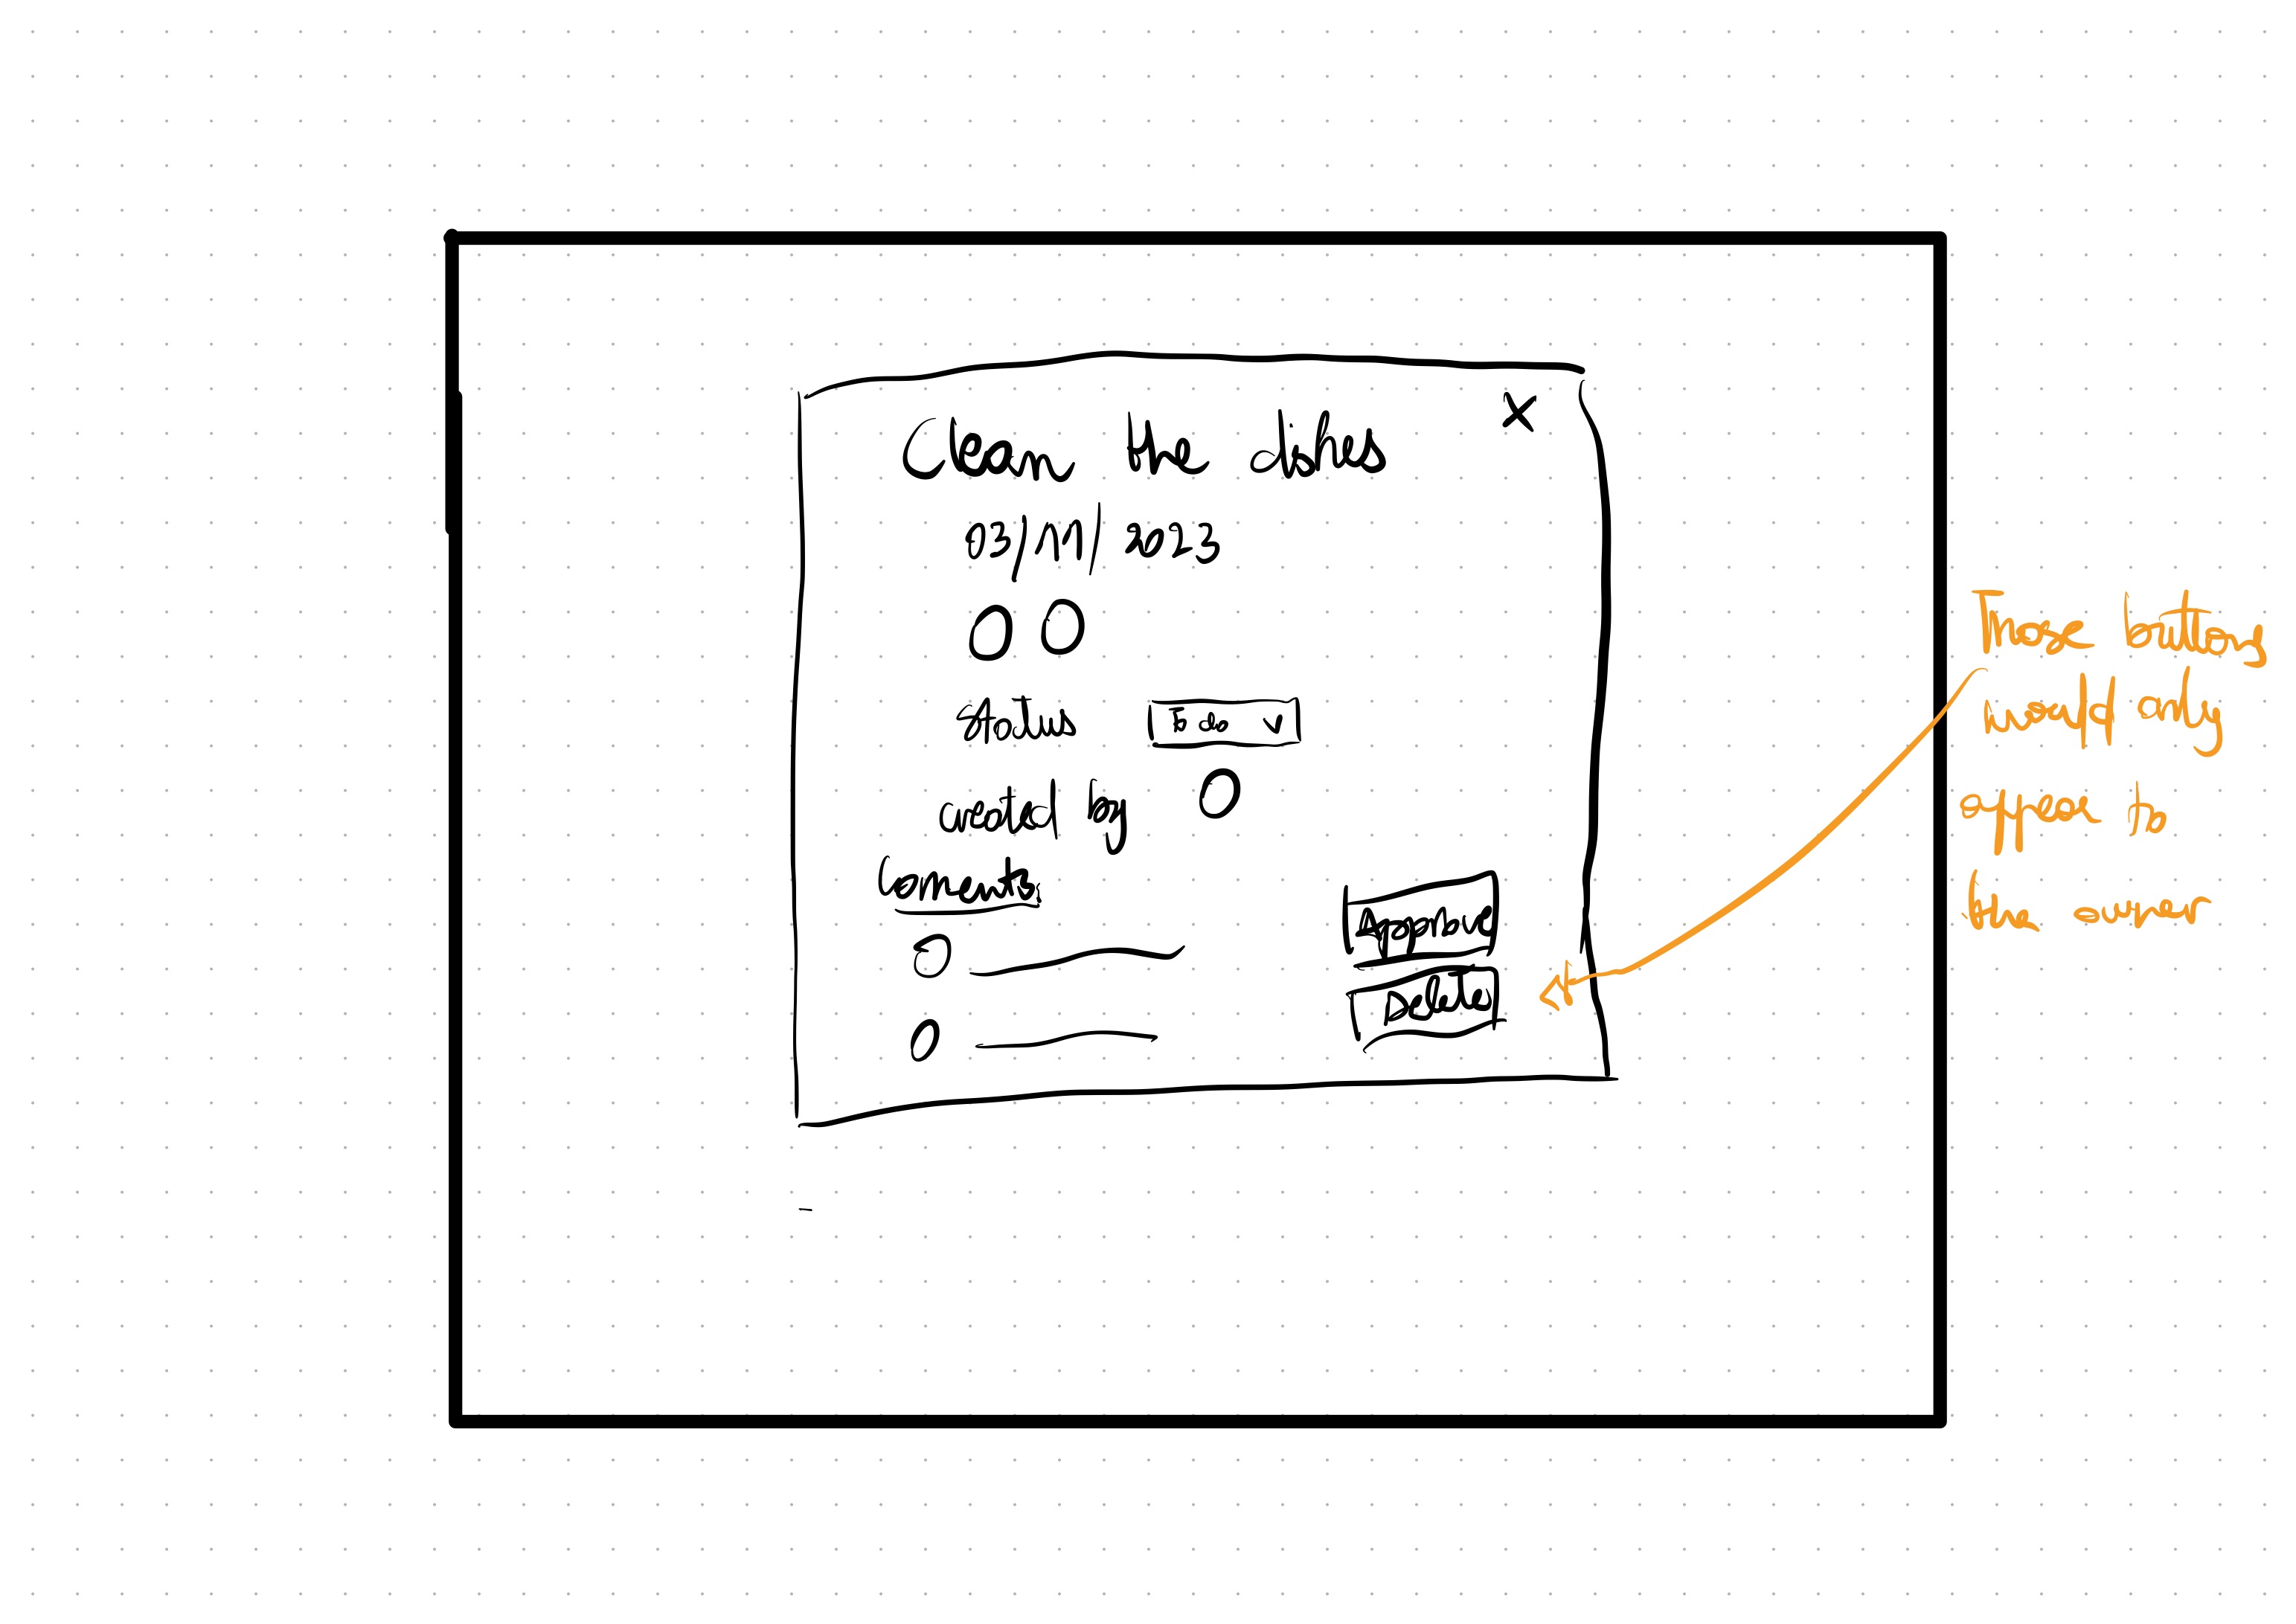 Clean the dishes
X
03/11/2023
Status To do
created by
Coments:
Approve
Delete
These buttons
would only
appear to
the owner